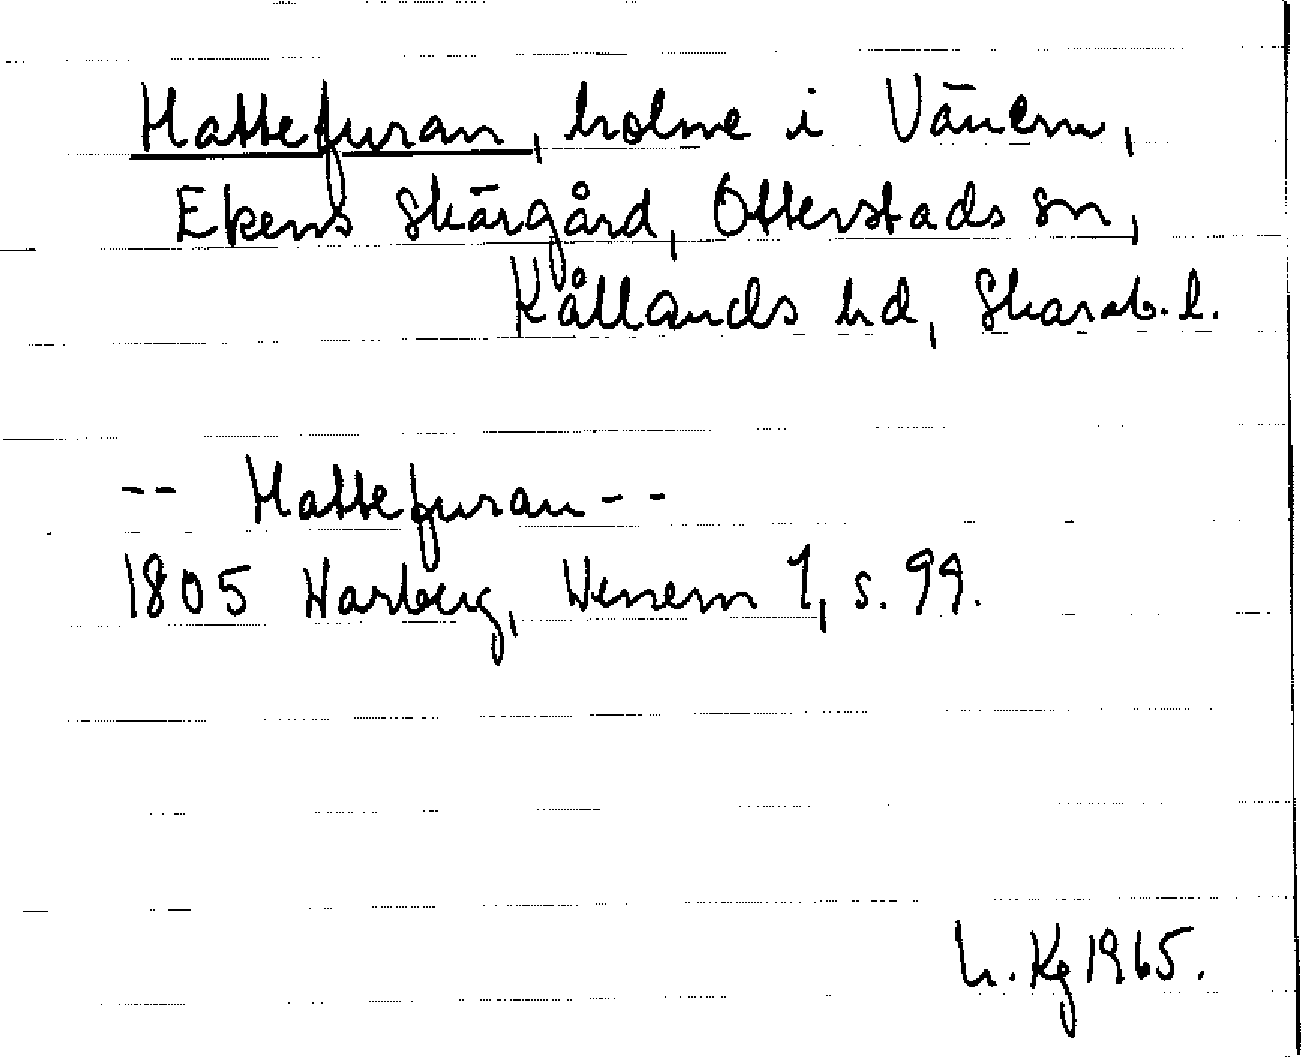 Hattefuran, holme i Vänern,
Ekens skärgård, Otterstads sn,
Kållands hd, Skarab. l.
-- Hattefuran --
1805 Warberg, Wenern 1, s. 99.
L. Kg 1965.